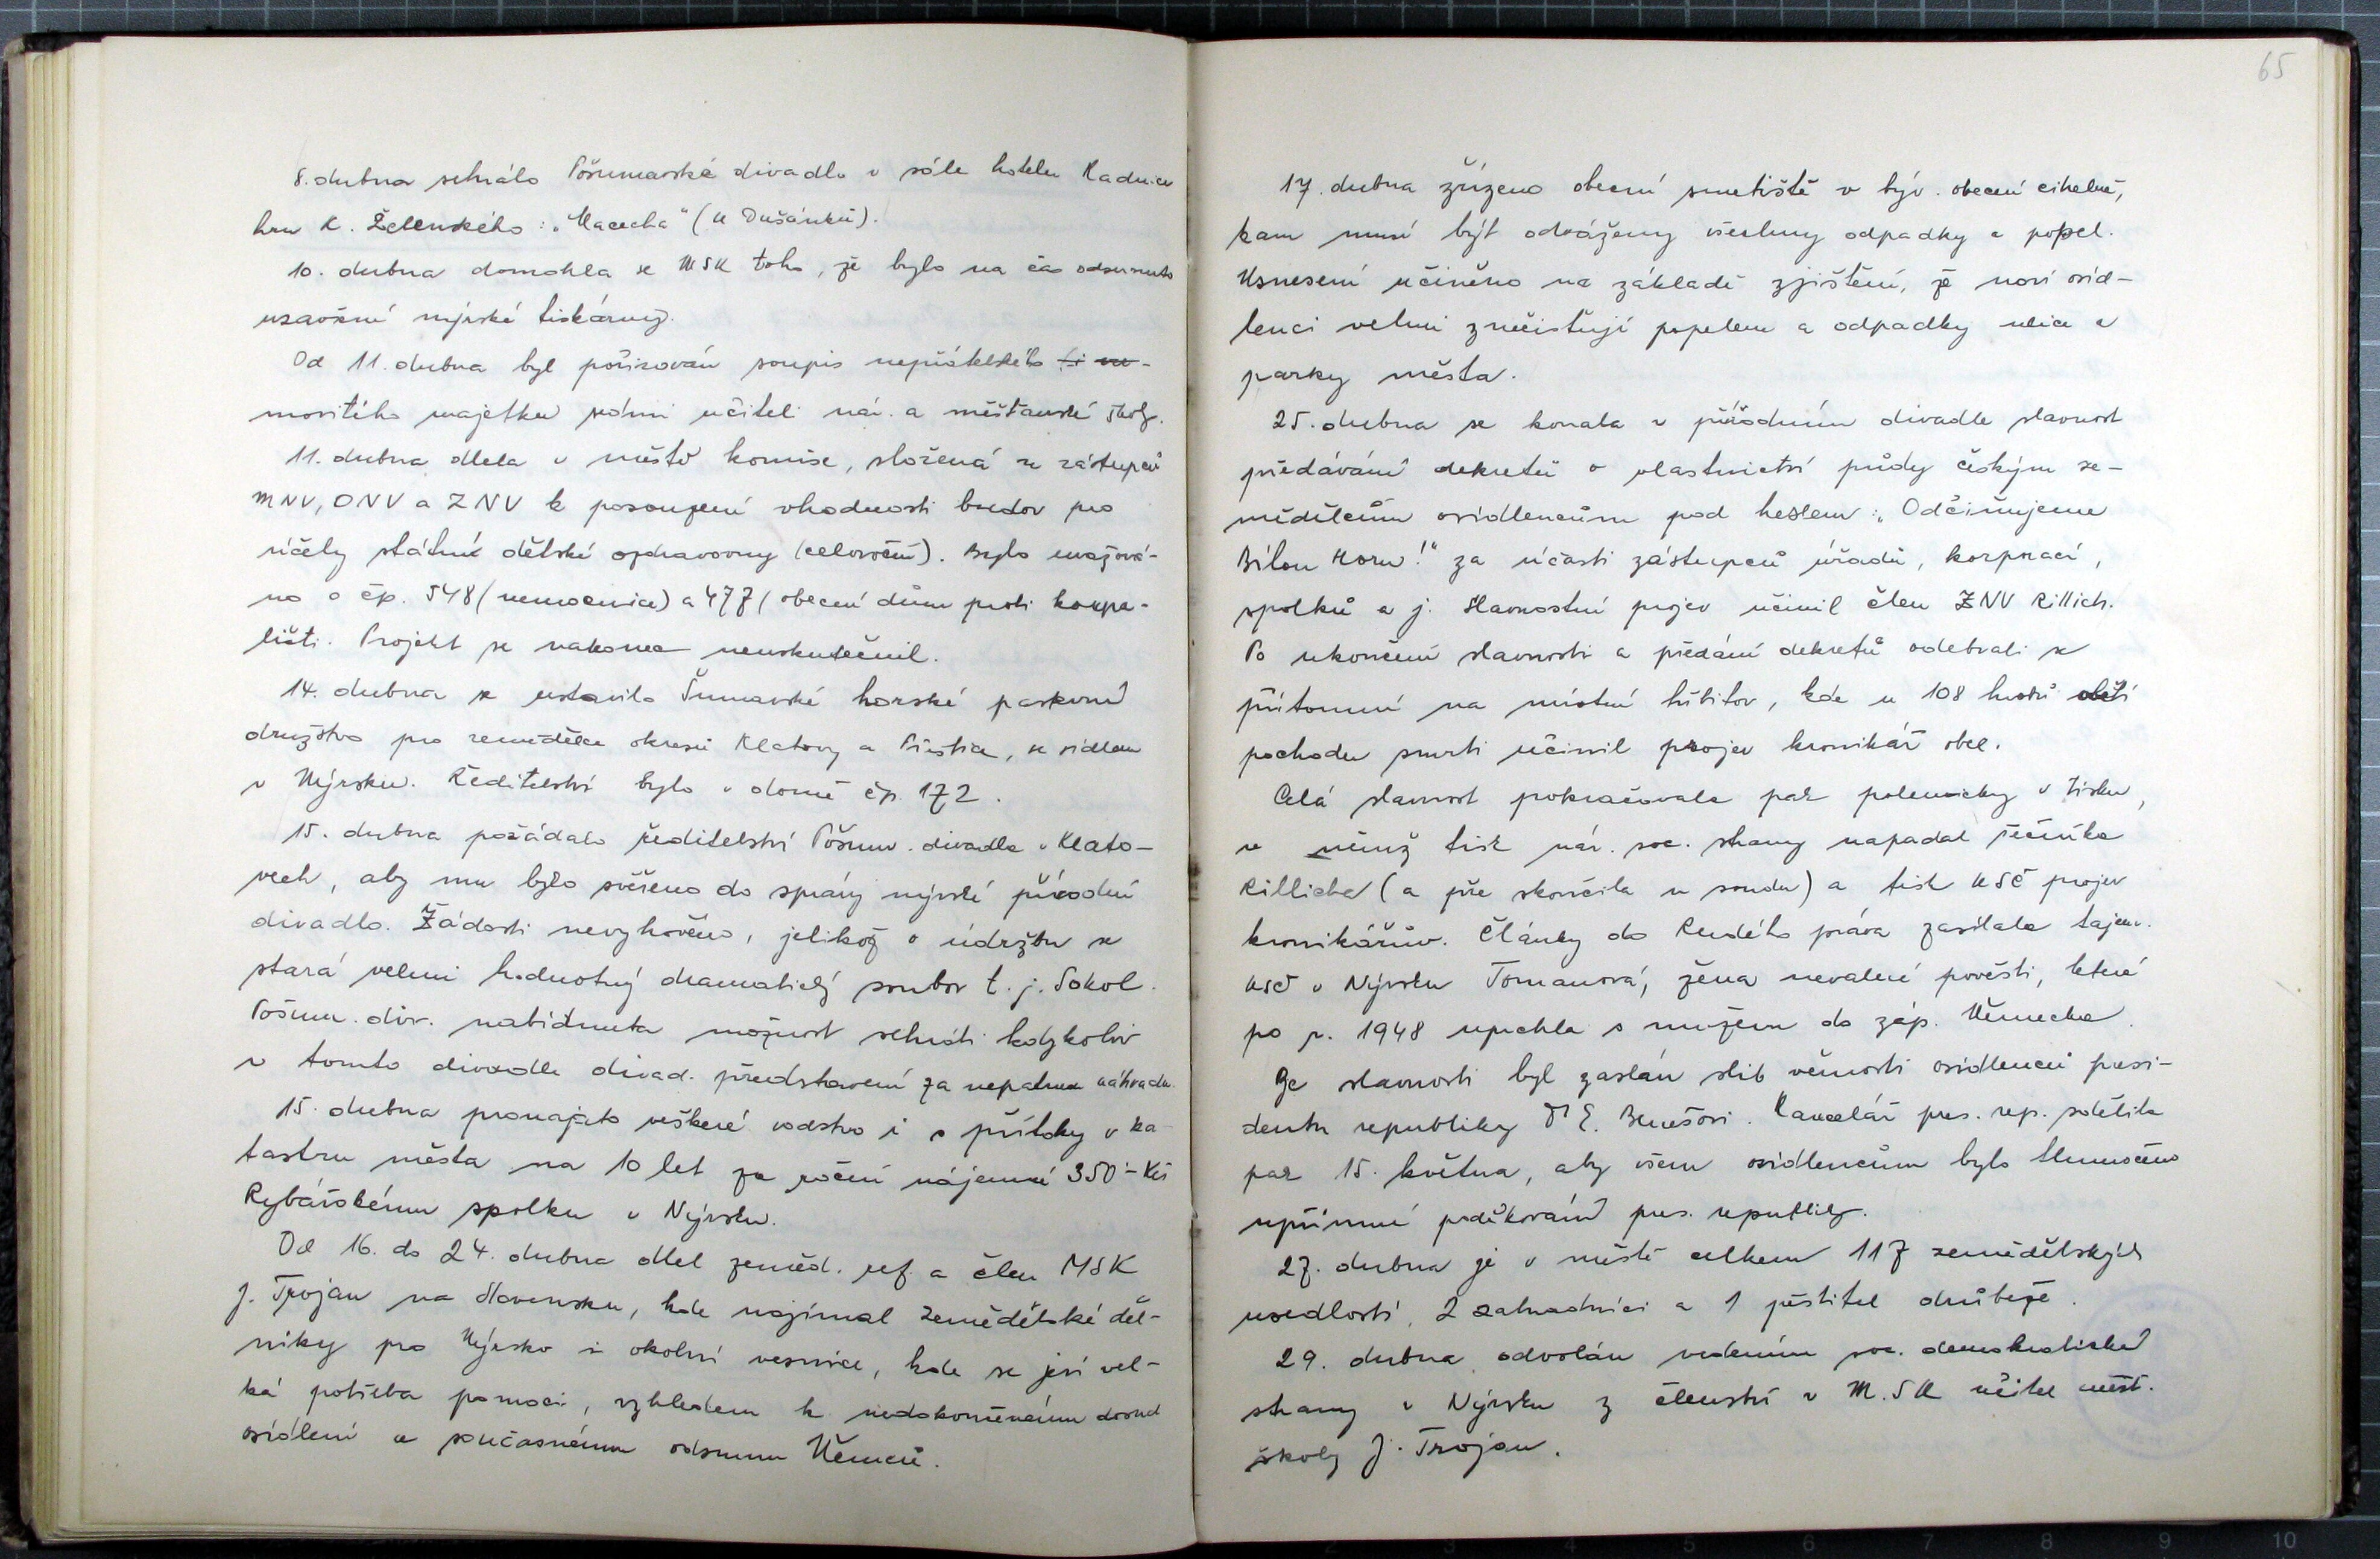 8. dubna sehrálo Pošumavské divadlo v sále hotelu Radnice
hru K. Želenského: „Macecha" (U Dušánků).
10. dubna domohla se MSK toho, že bylo na čas odsunuto
uzavření nýrské tiskárny.
Od 11. dubna byl pořizován soupis nepřátelského
movitého majetku všemi učiteli nár. a měšťanské školy.
11. dubna dlela v městě komise, složená ze zástupců
MNV, ONV a ZNV k posouzení vhodnosti budov pro
účely státní dětské ozdravovny (celoroční). Bylo uvažová-
no o čp. 548 (nemocnice) a 477 (obecní dům proti koupa-
lišti. Projekt se nakonec neuskutečnil.
14. dubna se ustavilo Šumavské horské pastevní
družstvo pro zemědělce okresů Klatovy a Sušice, se sídlem
v Nýrsku. Ředitelství bylo v domě čp. 172.
15. dubna požádalo ředitelství Pošum. divadla v Klato-
vech, aby mu bylo svěřeno do správy nýrské přírodní
divadlo. Žádosti nevyhověno, jelikož o údržbu se
stará velmi hodnotný dramatický soubor t. j. Sokol.
Pošum. div. nabídnuta možnost sehráti kdykoliv
v tomto divadle divad. představení za nepatrnou náhradu.
15. dubna pronajato veškeré vodstvo i s přítoky v ka-
tastru města na 10 let za roční nájemné 350·- Kčs
Rybářskému spolku v Nýrsku.
Od 16. do 24. dubna dlel zeměd. ref. a člen MSK
J. Trojan na Slovensku, kde najímal zemědělské děl-
níky pro Nýrsko i okolní vesnice, kde se jeví vel-
ká potřeba pomoci, vzhledem k nedokončenému dosud
osídlení a současnému odsunu Němců.
65
17. dubna zřízeno obecní smetiště v býv. obecní cihelně,
kam musí být odváženy všechny odpadky a popel.
Usnesení učiněno na základě zjištění, že noví osíd-
lenci velmi znečisťují popelem a odpadky ulice a
parky města.
25. dubna se konala v přírodním divadle slavnost
předávání dekretů o vlastnictví půdy českým ze-
mědělcům osídlencům pod heslem: „Odčiňujeme
Bílou Horu!" za účasti zástupců úřadů, korporací,
spolků a j. Slavnostní projev učinil člen ZNV Rillich.
Po ukončení slavnosti a předání dekretů odebrali se
přítomní na místní hřbitov, kde u 108 hrobů obětí
pochodu smrti učinil projev kronikář obce.
Celá slavnost pokračovala pak polemicky v tisku,
v němž tisk nár. soc. strany napadal řečníka
Rillicha (a pře skončila u soudu) a tisk KSČ projev
kronikářův. Články do Rudého práva zasílala tajem.
KSČ v Nýrsku Tomanová, žena nevalné pověsti, která
po r. 1948 uprchla s mužem do záp. Německa.
Ze slavnosti byl zaslán slib věrnosti osídlenců presi-
dentu republiky Dr E. Benešovi. Kancelář pres. rep. sdělila
pak 15. května, aby všem osídlencům bylo tlumočeno
upřímné poděkování pres. republiky.
27. dubna je v městě celkem 117 zemědělských
usedlostí, 2 zahradníci a 1 pěstitel drůbeže.
29. dubna odvolán vedením soc. demokratické
strany v Nýrsku z členství v M.SK učitel měšť.
školy J. Trojan.